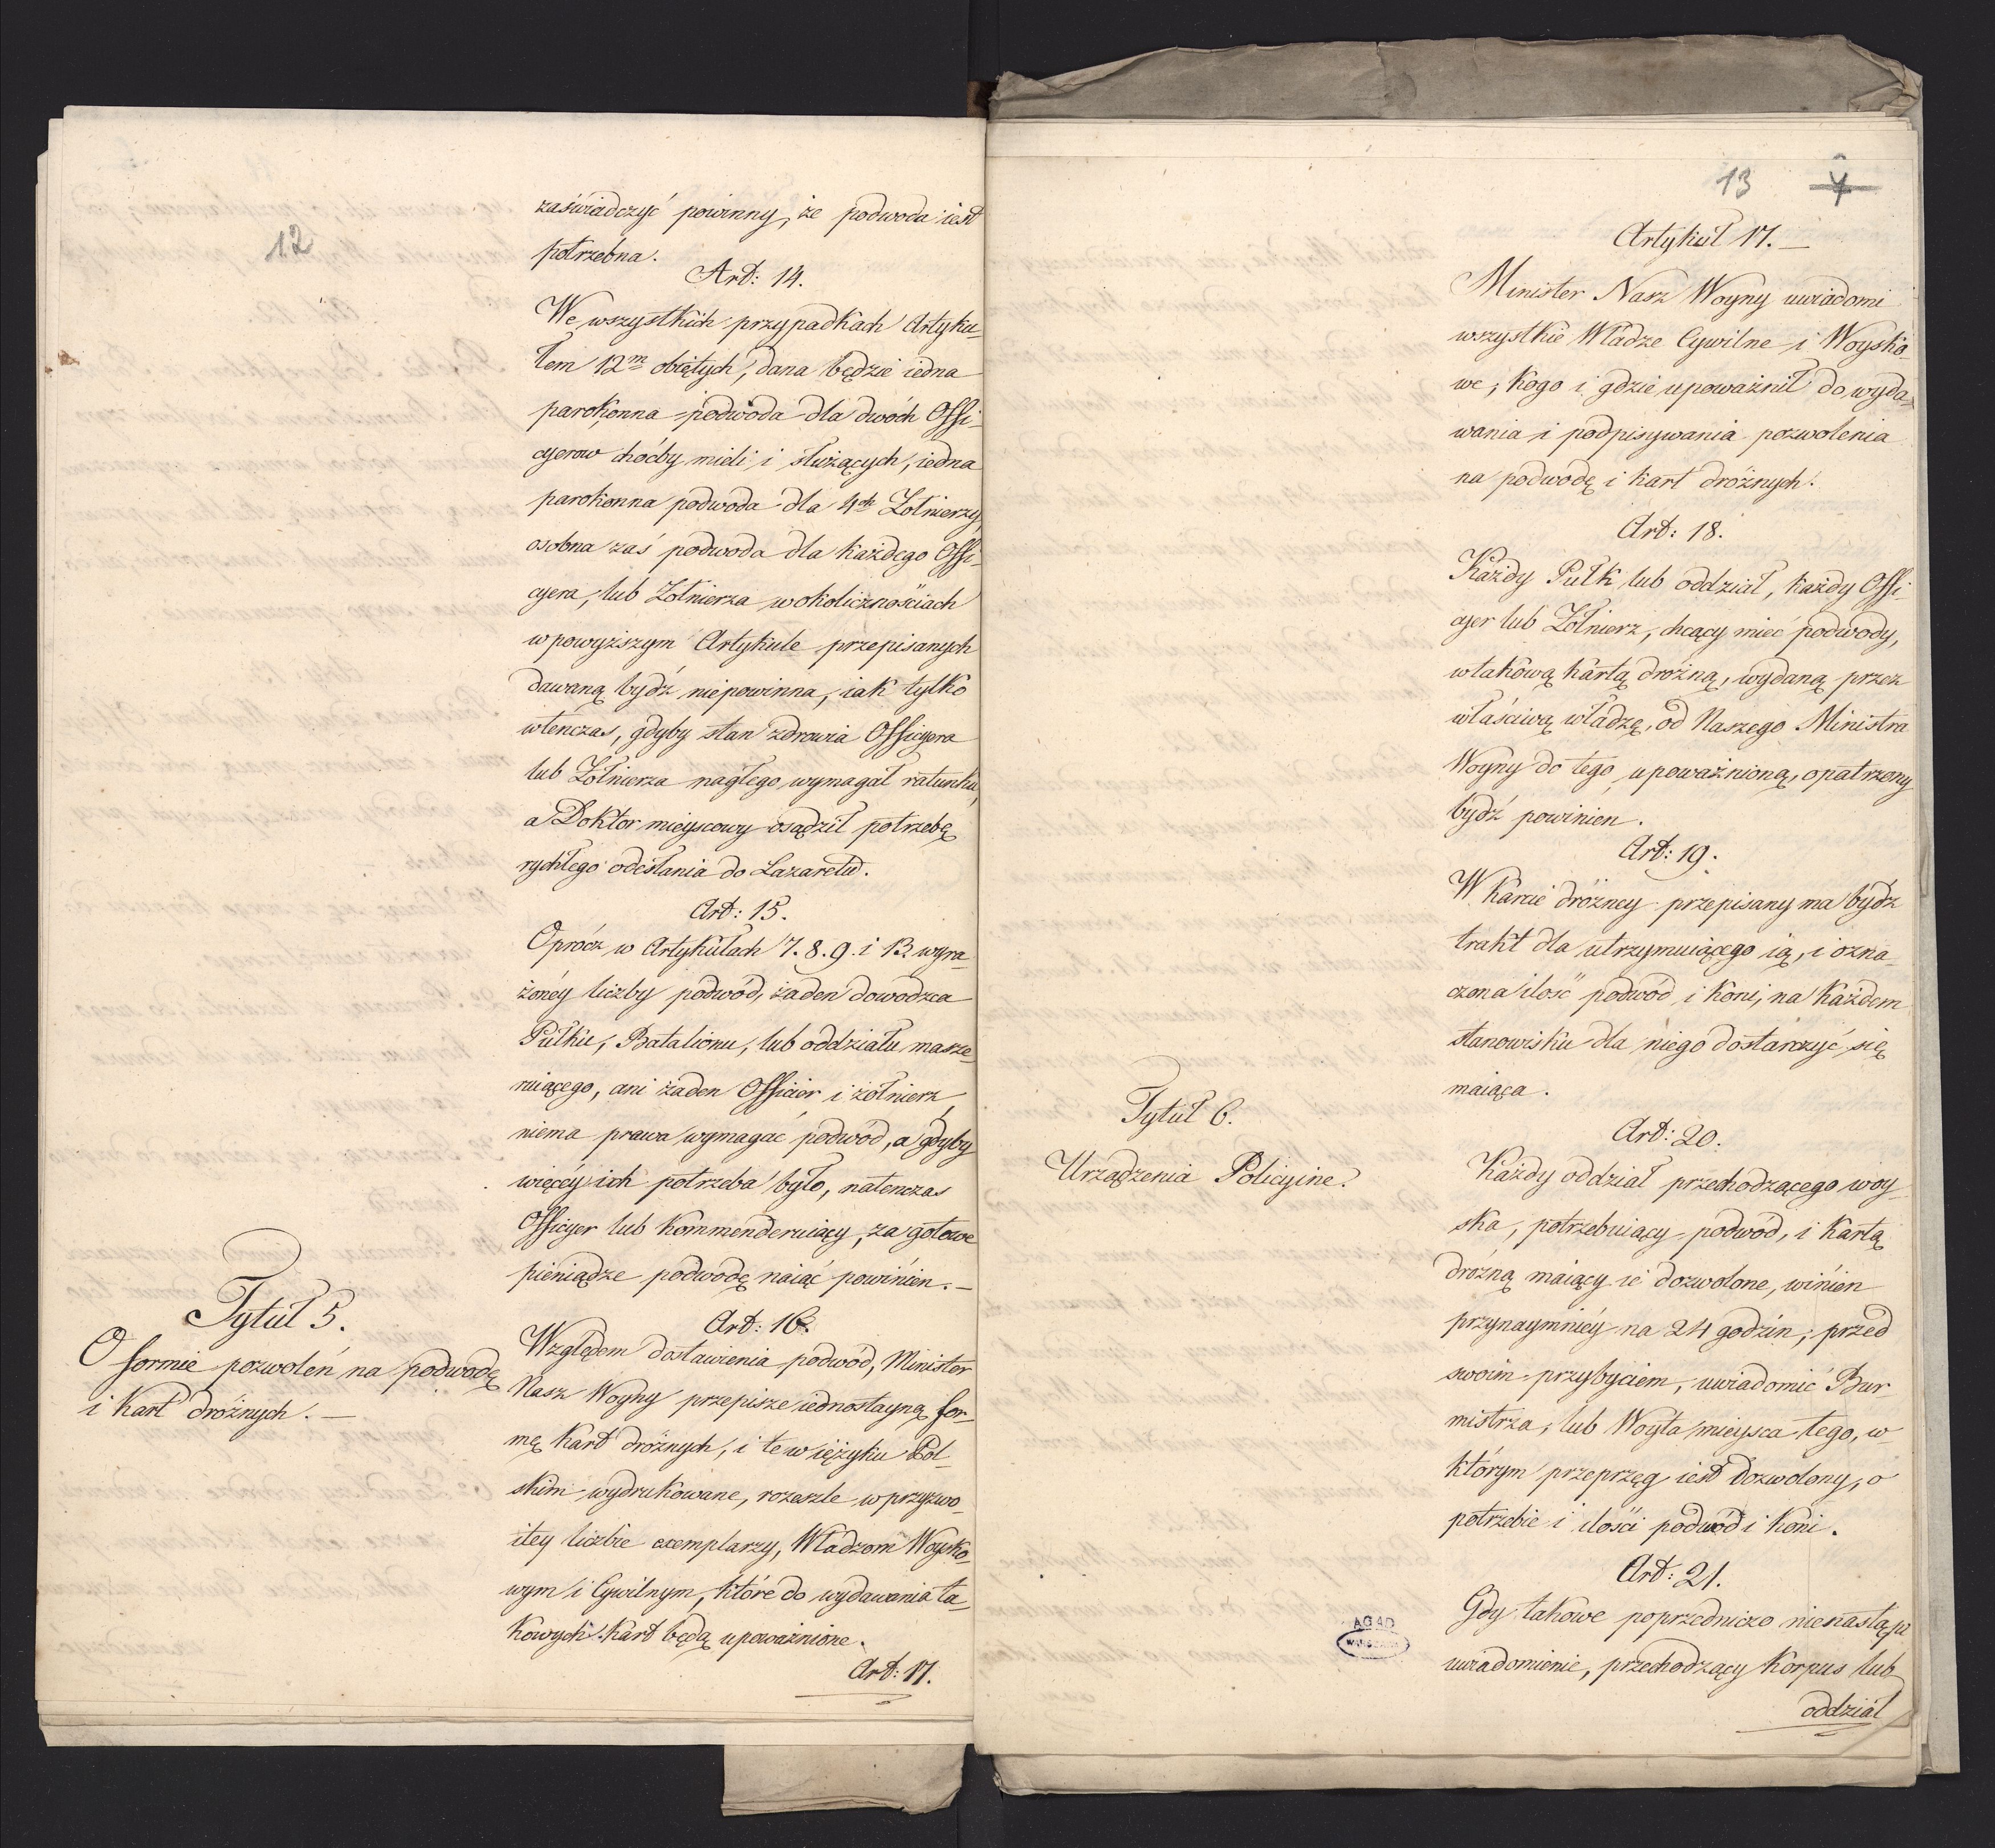 12
zaświadczyć powinny, że podwoda iest
potrzebna.
Art: 14.
We wszystkich przypadkach Artyku-
łem 12m obiętych, dana będzie iedna
parokonna podwoda dla dwóch Offi-
cyerow choćby mieli i służących, iedna
parokonna podwoda dla 4ch Zołnierzy,
osobna zaś podwoda dla każdego Offi-
cyera, lub Zołnierza w okolicznościach
w powyższym Artykule przepisanych
dawaną bydź niepowinna, iak tylko
wtenczas, gdyby stan zdrowia Officyera
lub Żołnierza nagłego wymagał ratunku,
a Doktor mieyscowy osądził potrzebę
rychłego odesłania do Lazaretu.
Art: 15.
Oprócz w Artykułach 7. 8. 9. i 13 wyra-
żoney liczby podwód, żaden dowodzca
Pułku, Batalionu, lub oddziału masze-
ruiącego, ani żaden Officier i żołnierz
niema prawa wymagać podwód, a gdyby
więcey ich potrzeba było, natenczas
Officyer lub Kommenderuiący, za gotowe
pieniądze podwodę naiąć powinien. —
Tytuł 5.
O formie pozwoleń na podwodę
i Kart dróżnych. —
Art: 16.
Względem dostawienia podwód, Minister
Nasz Woyny przepisze iednostayną for-
mę Kart dróżnych, i te w ięzyku Pol-
skim wydrukowane, rozeszle w przyzwo-
itey liczbie exemplarzy, Władzom Woysko-
wym i Cywilnym, które do wydawania ta-
kowych Kart będą upoważnione.
Art: 17.
13 4
Artykuł 17. —
Minister Nasz Woyny uwiadomi
wszystkie Władze Cywilne i Woysko-
we, kogo i gdzie upoważnił do wyda-
wania i podpisywania pozwolenia
na podwodę i kart dróżnych.
Art: 18.
Każdy Pułk lub oddział, każdy Offi-
cyer lub Zołnierz, chcący mieć podwody,
w takową kartą dróżną, wydaną przez
właściwą władzę, od Naszego Ministra
Woyny do tego upoważnioną, opatrzony
bydź powinien.
Art: 19.
W Karcie dróżney przepisany ma bydz
trakt dla utrzymuiącego ią, i ozna-
czona ilość podwód i koni, na każdem
stanowisku dla niego dostarczyć się
maiąca.
Tytuł 6.
Urządzenia Policyine.
Art: 20.
Każdy oddział przechodzącego woy-
ska, potrzebuiący podwód, i Kartą
dróżną maiący ie dozwolone, winien
przynaymniey na 24 godzin, przed
swoim przybyciem, uwiadomić Bur-
mistrza, lub Woyta mieysca tego, w
którym przeprzęg iest dozwolony, o
potrzebie i ilości podwód i koni.
Art: 21.
Gdy takowe poprzedniczo nienastąpi
uwiadomienie, przechodzący Korpus lub
oddział
AGAD
WARSZAWA